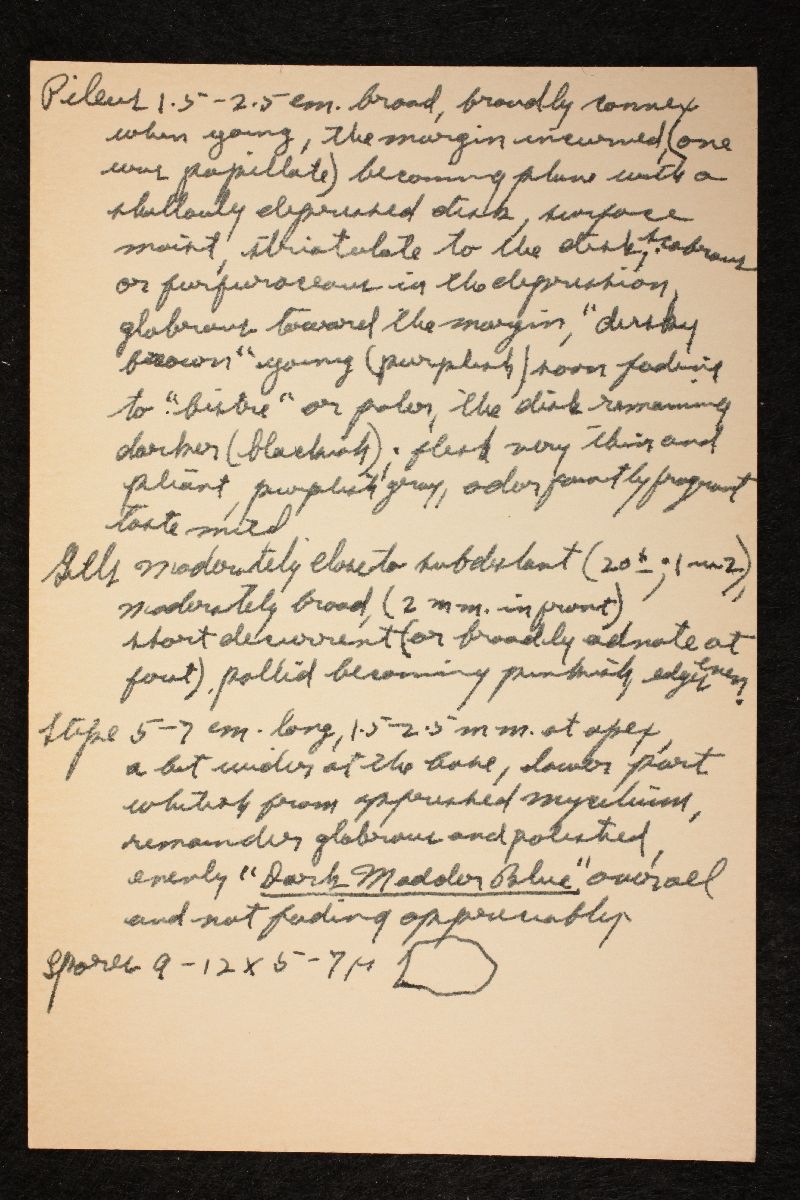 Pileus 1.5-2.5 cm. broad, broadly convex
when young, the margin incurved, (one
was papillate) becoming plane with a
shallowly depressed disk, surface
moist, striatulate to the disk, scabrous
or furfuraceous in the depression,
glabrous toward the margin, "dusky
brown" young (purplish) soon fading
to "bistre" or paler, the disk remaining
darker (blackish); flesh very thin and
pliant, purplish gray, odor faintly fragrant
taste mild
Gills moderately close to subdistant (20±; 1 2),
moderately broad, (2 mm. in front)
short decurrent (or broadly adnate at
first), pallid becoming pinkish, edges even.
Stipe 5-7 cm. long, 1.5-2.5 mm. at apex,
a bit wider at the base, lower part
whitish from appressed mycelium,
remainder glabrous and polished,
evenly "Dark Madder Blue" overall
and not fading appreciably.
Spores 9-12 x 5-7 µ